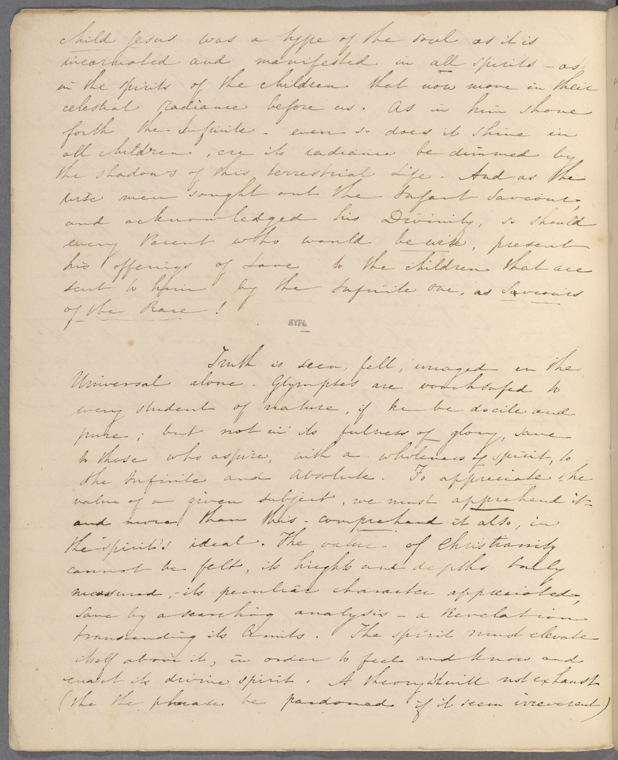 child Jesus was a type of the soul as it is
incarnated and manifested in all spirits - as
in the spirits of the children that now move in their
celestial radiance before us. As in him shone
forth the Infinite - even so does it shine in
all children, ere its radiance be dimmed by
the shadows of this terrestrial Life. And as the
wise men sought out the Infant Saviour,
and acknowledged his Divinity, so should
every Parent who would be wise, present
his offerings of Love to the children that are
sent to him by the Infinite One, as Saviours
of the Race!
NYPL
Truth is seen, felt, imaged in the
Universal alone. Glympses are vouchsafed to
every student of nature, if he be docile and
pure; but not in its fulness of glory, save
to those who aspire, with a wholeness of spirit, to
the Infinite and Absolute. To appreciate the
value of a given subject, we must apprehend it -
and more than this - comprehend it also, in
the spirit's ideal. The value of Christianity
cannot be felt, its heights and depths truly
measured, its peculiar character appreciated,
save by a searching analysis - a Revelation
transcending its limits. The spirit must elevate
itself above it, in order to feel and know and
enact its divine spirit. A theory that will not exhaust
(the the phrase be pardoned if it seem irreverent)